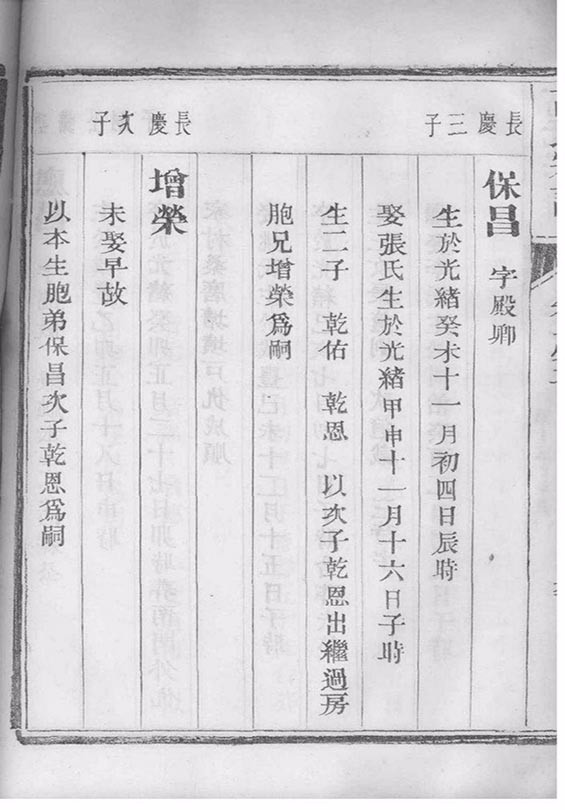 長慶三子
保昌 字殿卿
生於光緒癸未十一月初四日辰時
娶張氏生於光緒甲申十一月十六日子時
生二子 乾佑 乾恩 以次子乾恩出繼過房
胞兄增榮爲嗣
長慶次子
增榮
未娶早故
以本生胞弟保昌次子乾恩爲嗣